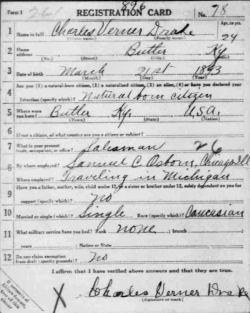 Form 1 896 No. 78
REGISTRATION CARD
1 Name in full Charles Verner Drake Age, in yrs. 24
2 Home address Butler Ky.
3 Date of birth March 21st 1893
4 Are you (1) a natural-born citizen, (2) a naturalized citizen, (3) an alien, (4) or have you declared your
intention (specify which)? Natural born citizen
5 Where were you born? Butler Ky. U.S.A.
6 If not a citizen, of what country are you a citizen or subject?
7 What is your present trade, occupation, or office? Salesman 26
8 By whom employed? Samuel C Osborn, Chicago Ill
Where employed? Traveling in Michigan
9 Have you a father, mother, wife, child under 12, or a sister or brother under 12, solely dependent on you for
support (specify which)? no
10 Married or single (which)? Single Race (specify which)? Caucasian
11 What military service have you had? Rank none branch
years Nation or State
12 Do you claim exemption from draft (specify grounds)? No
I affirm that I have verified above answers and that they are true.
X Charles Verner Drake
(Signature or mark)